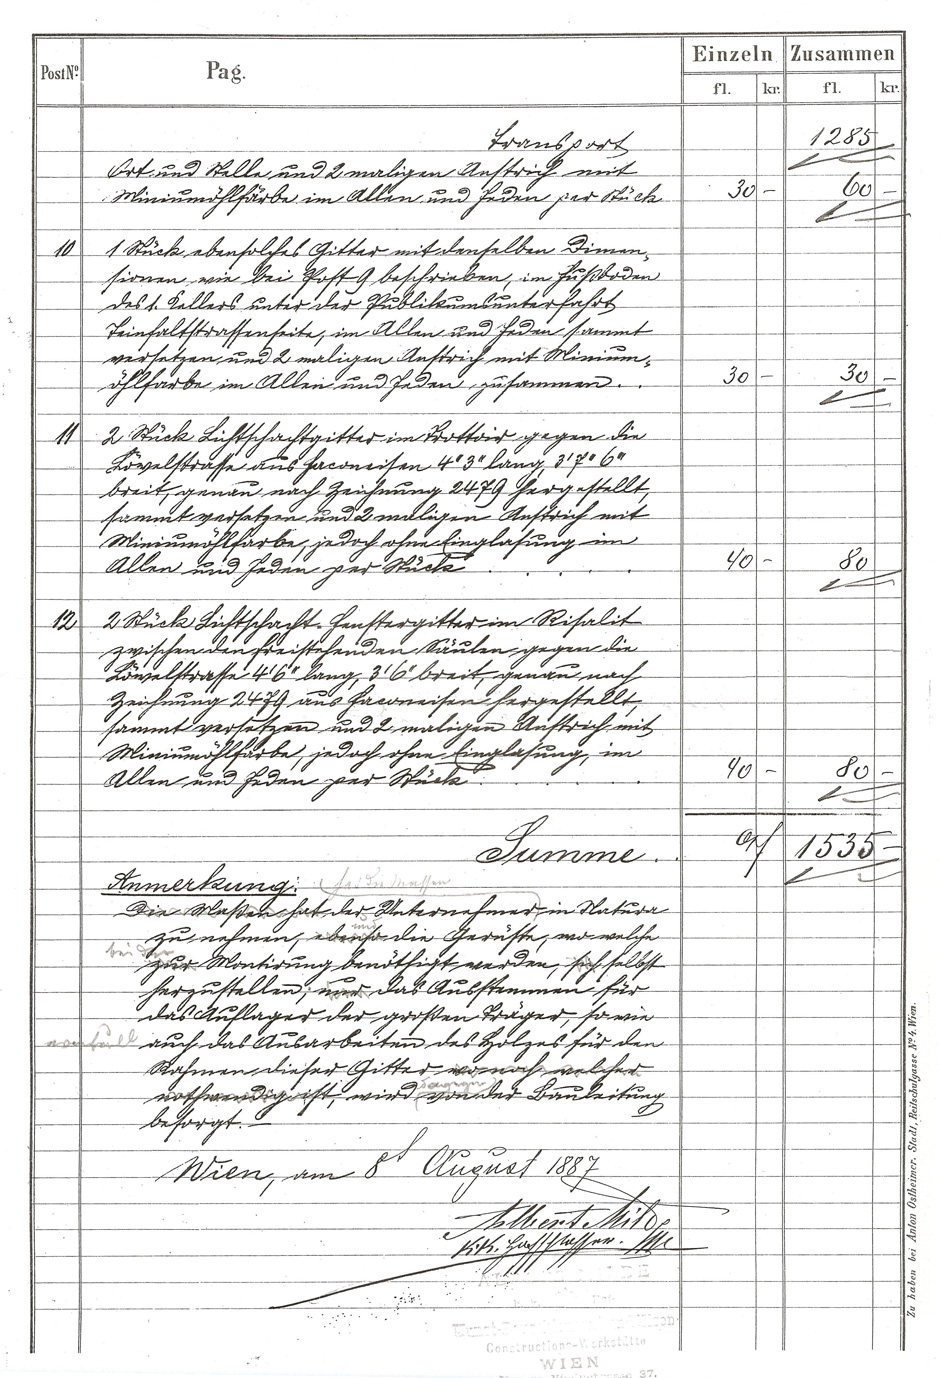 Post Nº Pag. Einzeln Zusammen
fl. kr. fl. kr.
Transport 1285
Ort und Stelle und 2 maligen Anstrich mit
Miniumöhlfarbe im Allen und Jeden per Stück 30 - 60 -
10 1 Stück ebensolches Gitter mit denselben Dimen-
sionen wie bei Post 9 beschrieben, im Fußboden
des 1. Kellers unter der Publikumsunterfahrt
Teinfaltstrassenseite, im Allen und Jeden sammt
versetzen und 2 maligen Anstrich mit Minium-
öhlfarbe im Allen und Jeden zusammen . . 30 - 30 -
11 2 Stück Lichtschachtgitter im Trottoir gegen die
Löwelstrasse aus Faconeisen 4° 3" lang, 3' 7" 6"
breit, genau nach Zeichnung 2479 hergestellt,
sammt versetzen und 2 maligen Anstrich mit
Miniumöhlfarbe, jedoch ohne Einglasung im
Allen und Jeden per Stück . . . . 40 - 80
12 2 Stück Lichtschacht-Fenstergitter im Risalit
zwischen den freistehenden Säulen gegen die
Löwelstrasse 4'6" lang, 3'6" breit, genau nach
Zeichnung 2479 aus Faconeisen hergestellt,
sammt versetzen und 2 maligen Anstrich mit
Miniumöhlfarbe, jedoch ohne Einglasung, im
Allen und Jeden per Stück . . . . 40 - 80 -
Summe . . 1535 -
Anmerkung:
Die Maßen hat der Unternehmer in Natura
und
zu nehmen, ebenso die Gerüste, wo welche
bei der
zur Montirung benöthigt werden, sich selbst
herzustellen; nur das Ausstemmen für
das Auflager der großen Träger, so wie
eventuell auch das Ausarbeiten des Holzes für den
Rahmen dieser Gitter wonach welcher
dagegen
nothwendig ist, wird von der Bauleitung
besorgt. -
Wien, am 8t August 1887
Albert Milde
k.k. Hofschlosser.
Constructions-Werkstätte
WIEN
Zu haben bei Anton Ostheimer. Stadt, Reitschulgasse Nº 4. Wien.